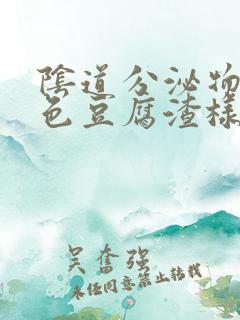 陰道分泌物
色豆腐渣樣
吴奮强
未任同意禁止转载